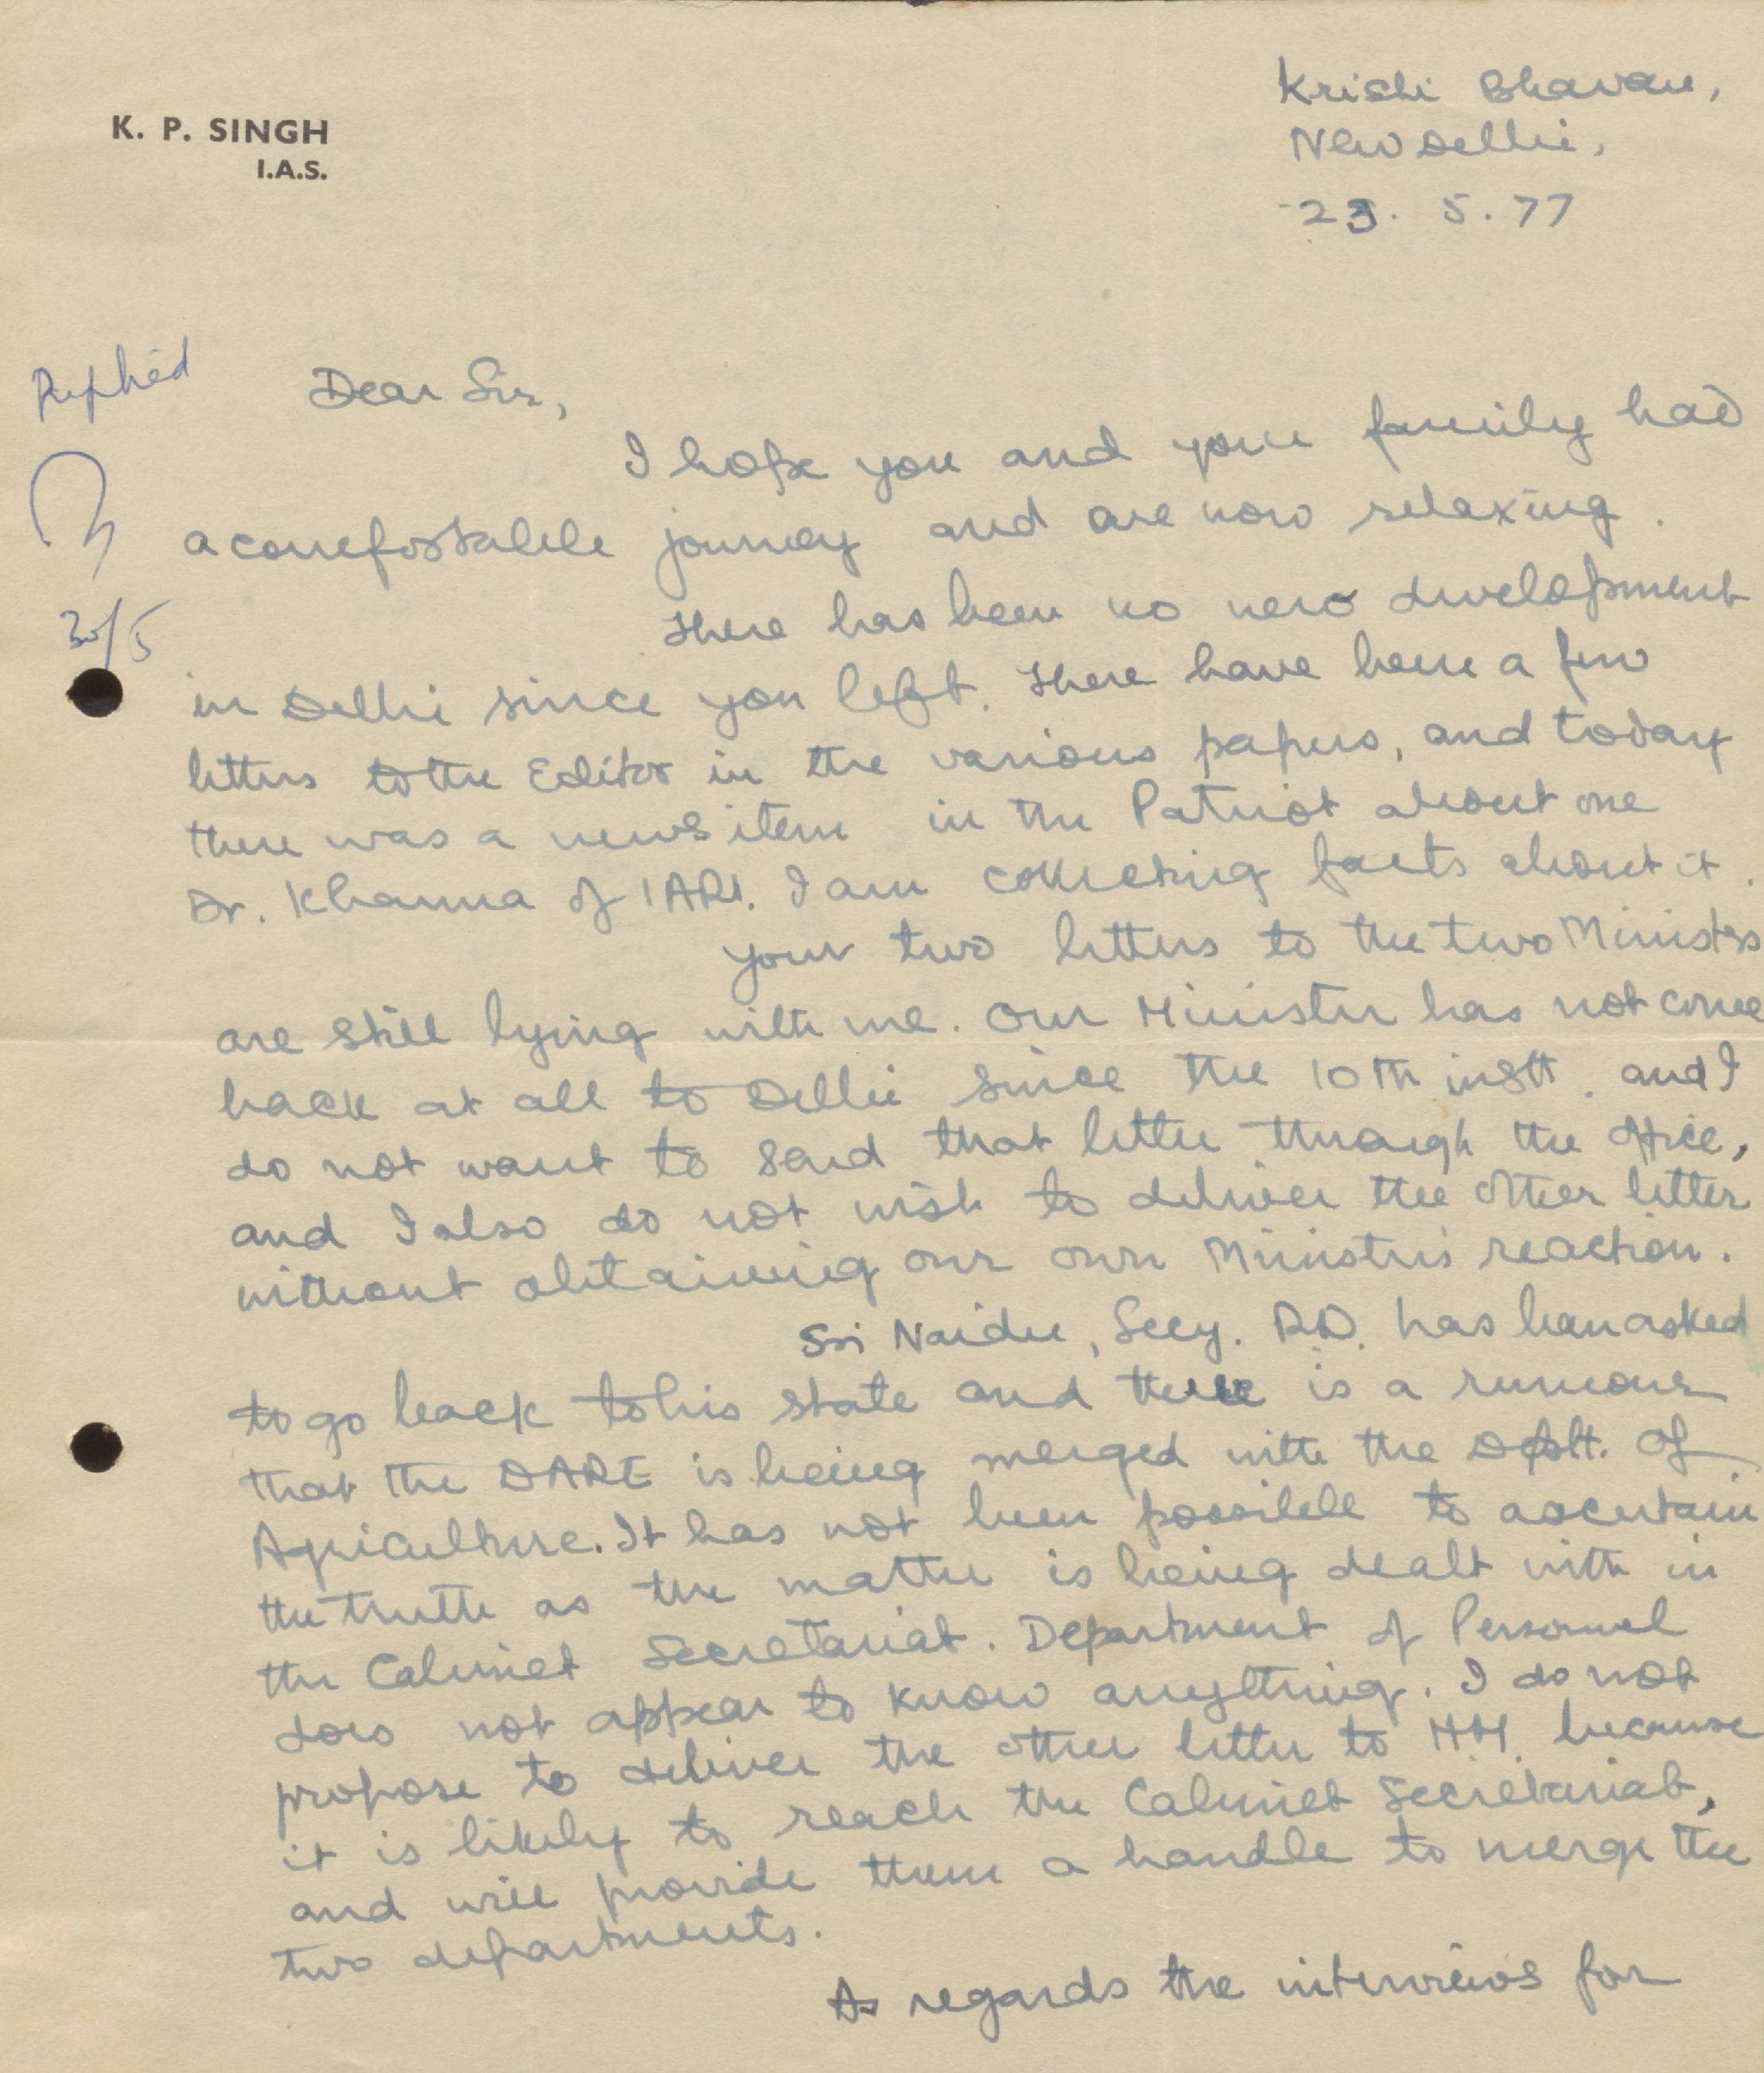 K. P. SINGH
I.A.S.
Krishi Bhavan,
New Delhi,
23. 5. 77
Replied
30/5
Dear Sir,
I hope you and your family had
a comfortable journey and are now relaxing.
There has been no new development
in Delhi since you left. There have been a few
letters to the Editor in the various papers, and today
there was a news item in the Patriot about one
Dr. Khanna of IARI. I am collecting facts about it.
Your two letters to the two Ministers
are still lying with me. Our Minister has not come
back at all to Delhi since the 10th instt. and I
do not want to send that letter through the office,
and I also do not wish to deliver the other letter
without obtaining our own Minister's reaction.
Sri Naidu, Secy. R.D. has been asked
to go back to his state and there is a rumour
that the DARE is being merged with the Deptt. of
Agriculture. It has not been possible to ascertain
the truth as the matter is being dealt with in
the Cabinet Secretariat. Department of Personnel
does not appear to know anything. I do not
propose to deliver the other letter to HM because
it is likely to reach the Cabinet Secretariat,
and will provide them a handle to merge the
two departments.
As regards the interviews for